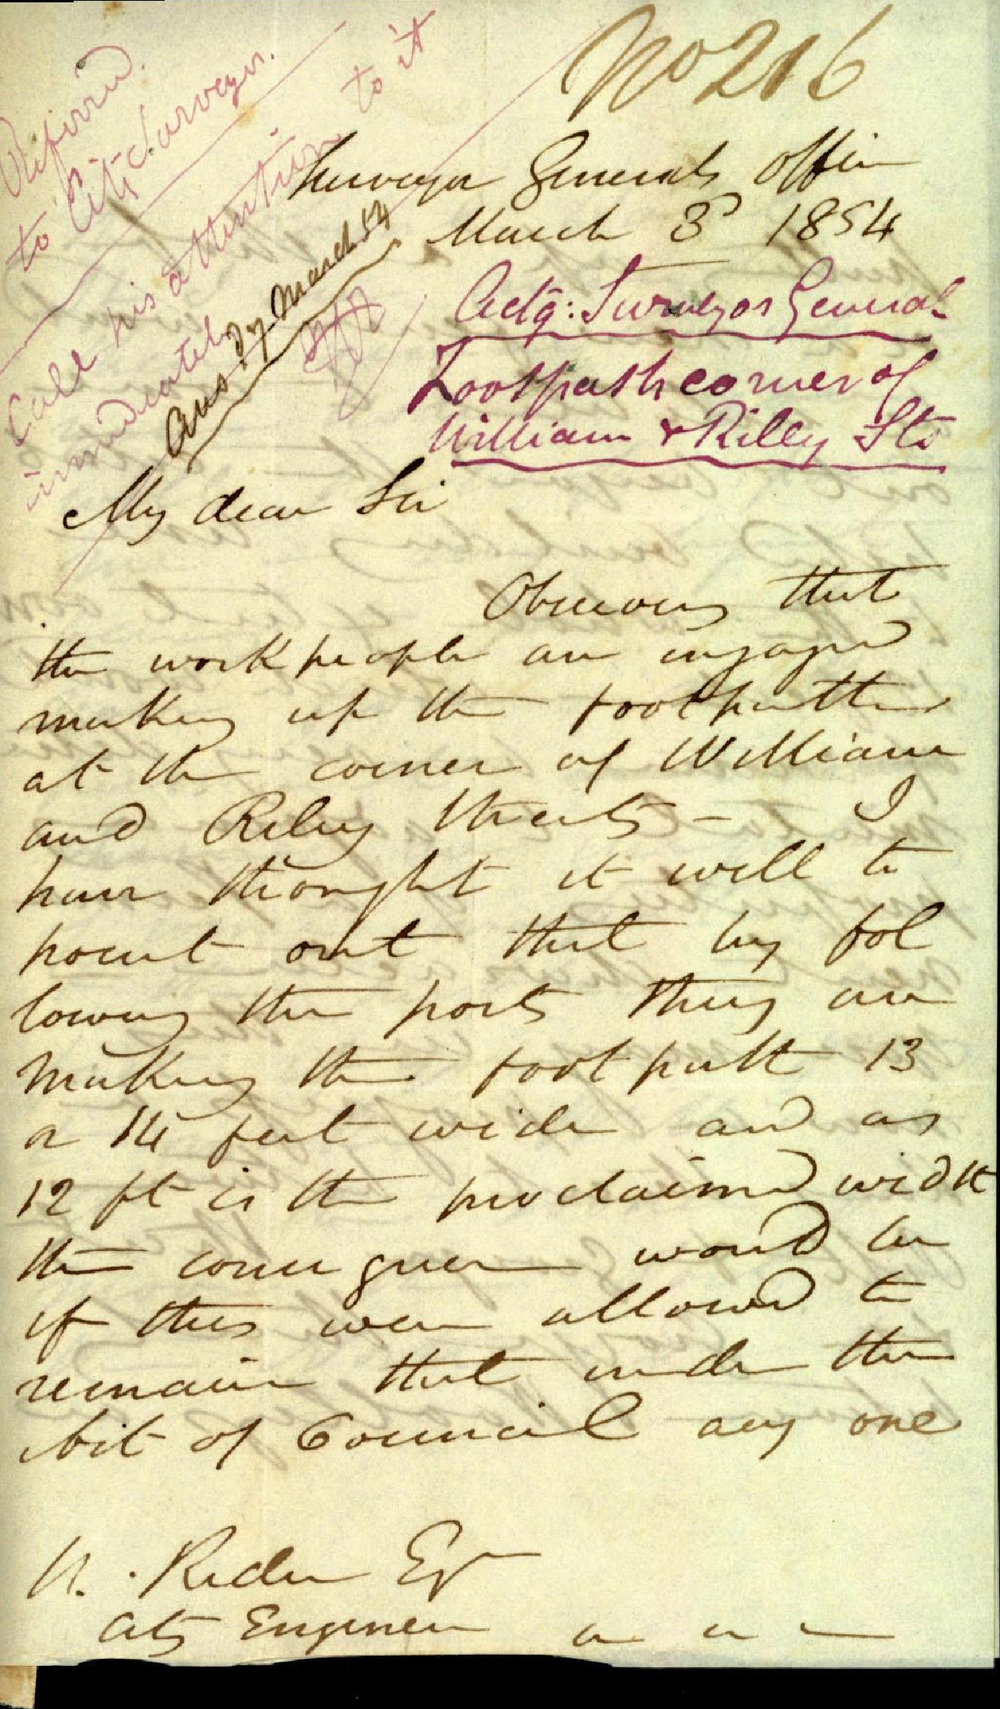 No 216
Referred
to City Surveyor.
Call his attention to it
immediately
Ans 7 March 54
Surveyor Generals Office
March 3d 1854
Actg: Surveyor General
Footpath corner of
William & Riley Sts
My dear Sir
Observing that
the workpeople are engaged
making up the footpaths
at the corner of William
and Riley Streets - I
have thought it well to
point out that by fol
lowing the posts they are
making the footpath 13
a 14 feet wide and as
12 ft is the proclaimed width
the consequence would be
if this were allowed to
remain that under the
Act of Council any one
Rider Esq
City Engineer